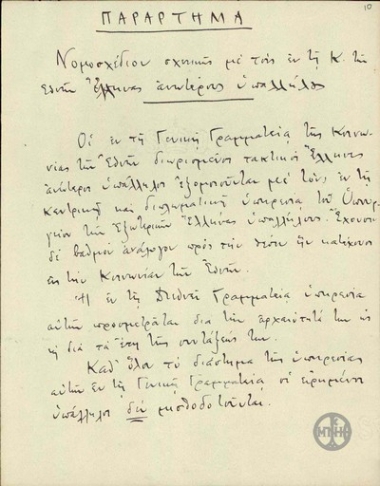 10
ΠΑΡΑΡΤΗΜΑ
Νομοσχέδιον σχετικῶς μέ τούς ἐν τῇ Κ. τῶν
Ἐθνῶν Ἕλληνας ἀνωτέρους ὑπαλλήλους
Οἱ ἐν τῇ Γενικῇ Γραμματείᾳ τῆς Κοινω-
νίας τῶν Ἐθνῶν διωρισμένοι τακτικοί Ἕλληνες
ἀνώτεροι ὑπάλληλοι ἐξομοιοῦνται μέ τούς ἐν τῇ
κεντρικῇ καί διπλωματικῇ ὑπηρεσίᾳ τοῦ Ὑπουρ-
γείου τῶν Ἐξωτερικῶν Ἕλληνας ὑπαλλήλους. Ἔχουσι
δέ βαθμόν ἀνάλογον πρός τήν θέσιν ἥν κατέχουν
εἰς τήν Κοινωνίαν τῶν Ἐθνῶν.
Ἡ ἐν τῇ Διεθνεῖ Γραμματείᾳ ὑπηρεσία
αὐτῶν προσμετρᾶται διά τήν ἀρχαιότητά των ὡς
καί διά τά ἔτη τῆς συντάξεώς των.
Καθ' ὅλον τό διάστημα τῆς ὑπηρεσίας
αὐτῶν ἐν τῇ Γενικῇ Γραμματείᾳ οἱ εἰρημένοι
ὑπάλληλοι δέν μισθοδοτοῦνται.